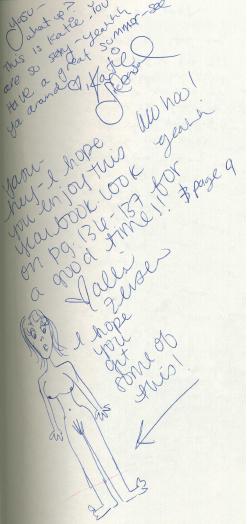 You -
what up?
This is Katie. You
are so sexy - yeahhh
Have a great summer - see
ya around
Katie
Woo hoo!
yeahh
hey - I hope
you enjoy this
yearbook. Look
on pg. 136-137 for
a good time!!
& page 9
I hope
you
get
some of
this!